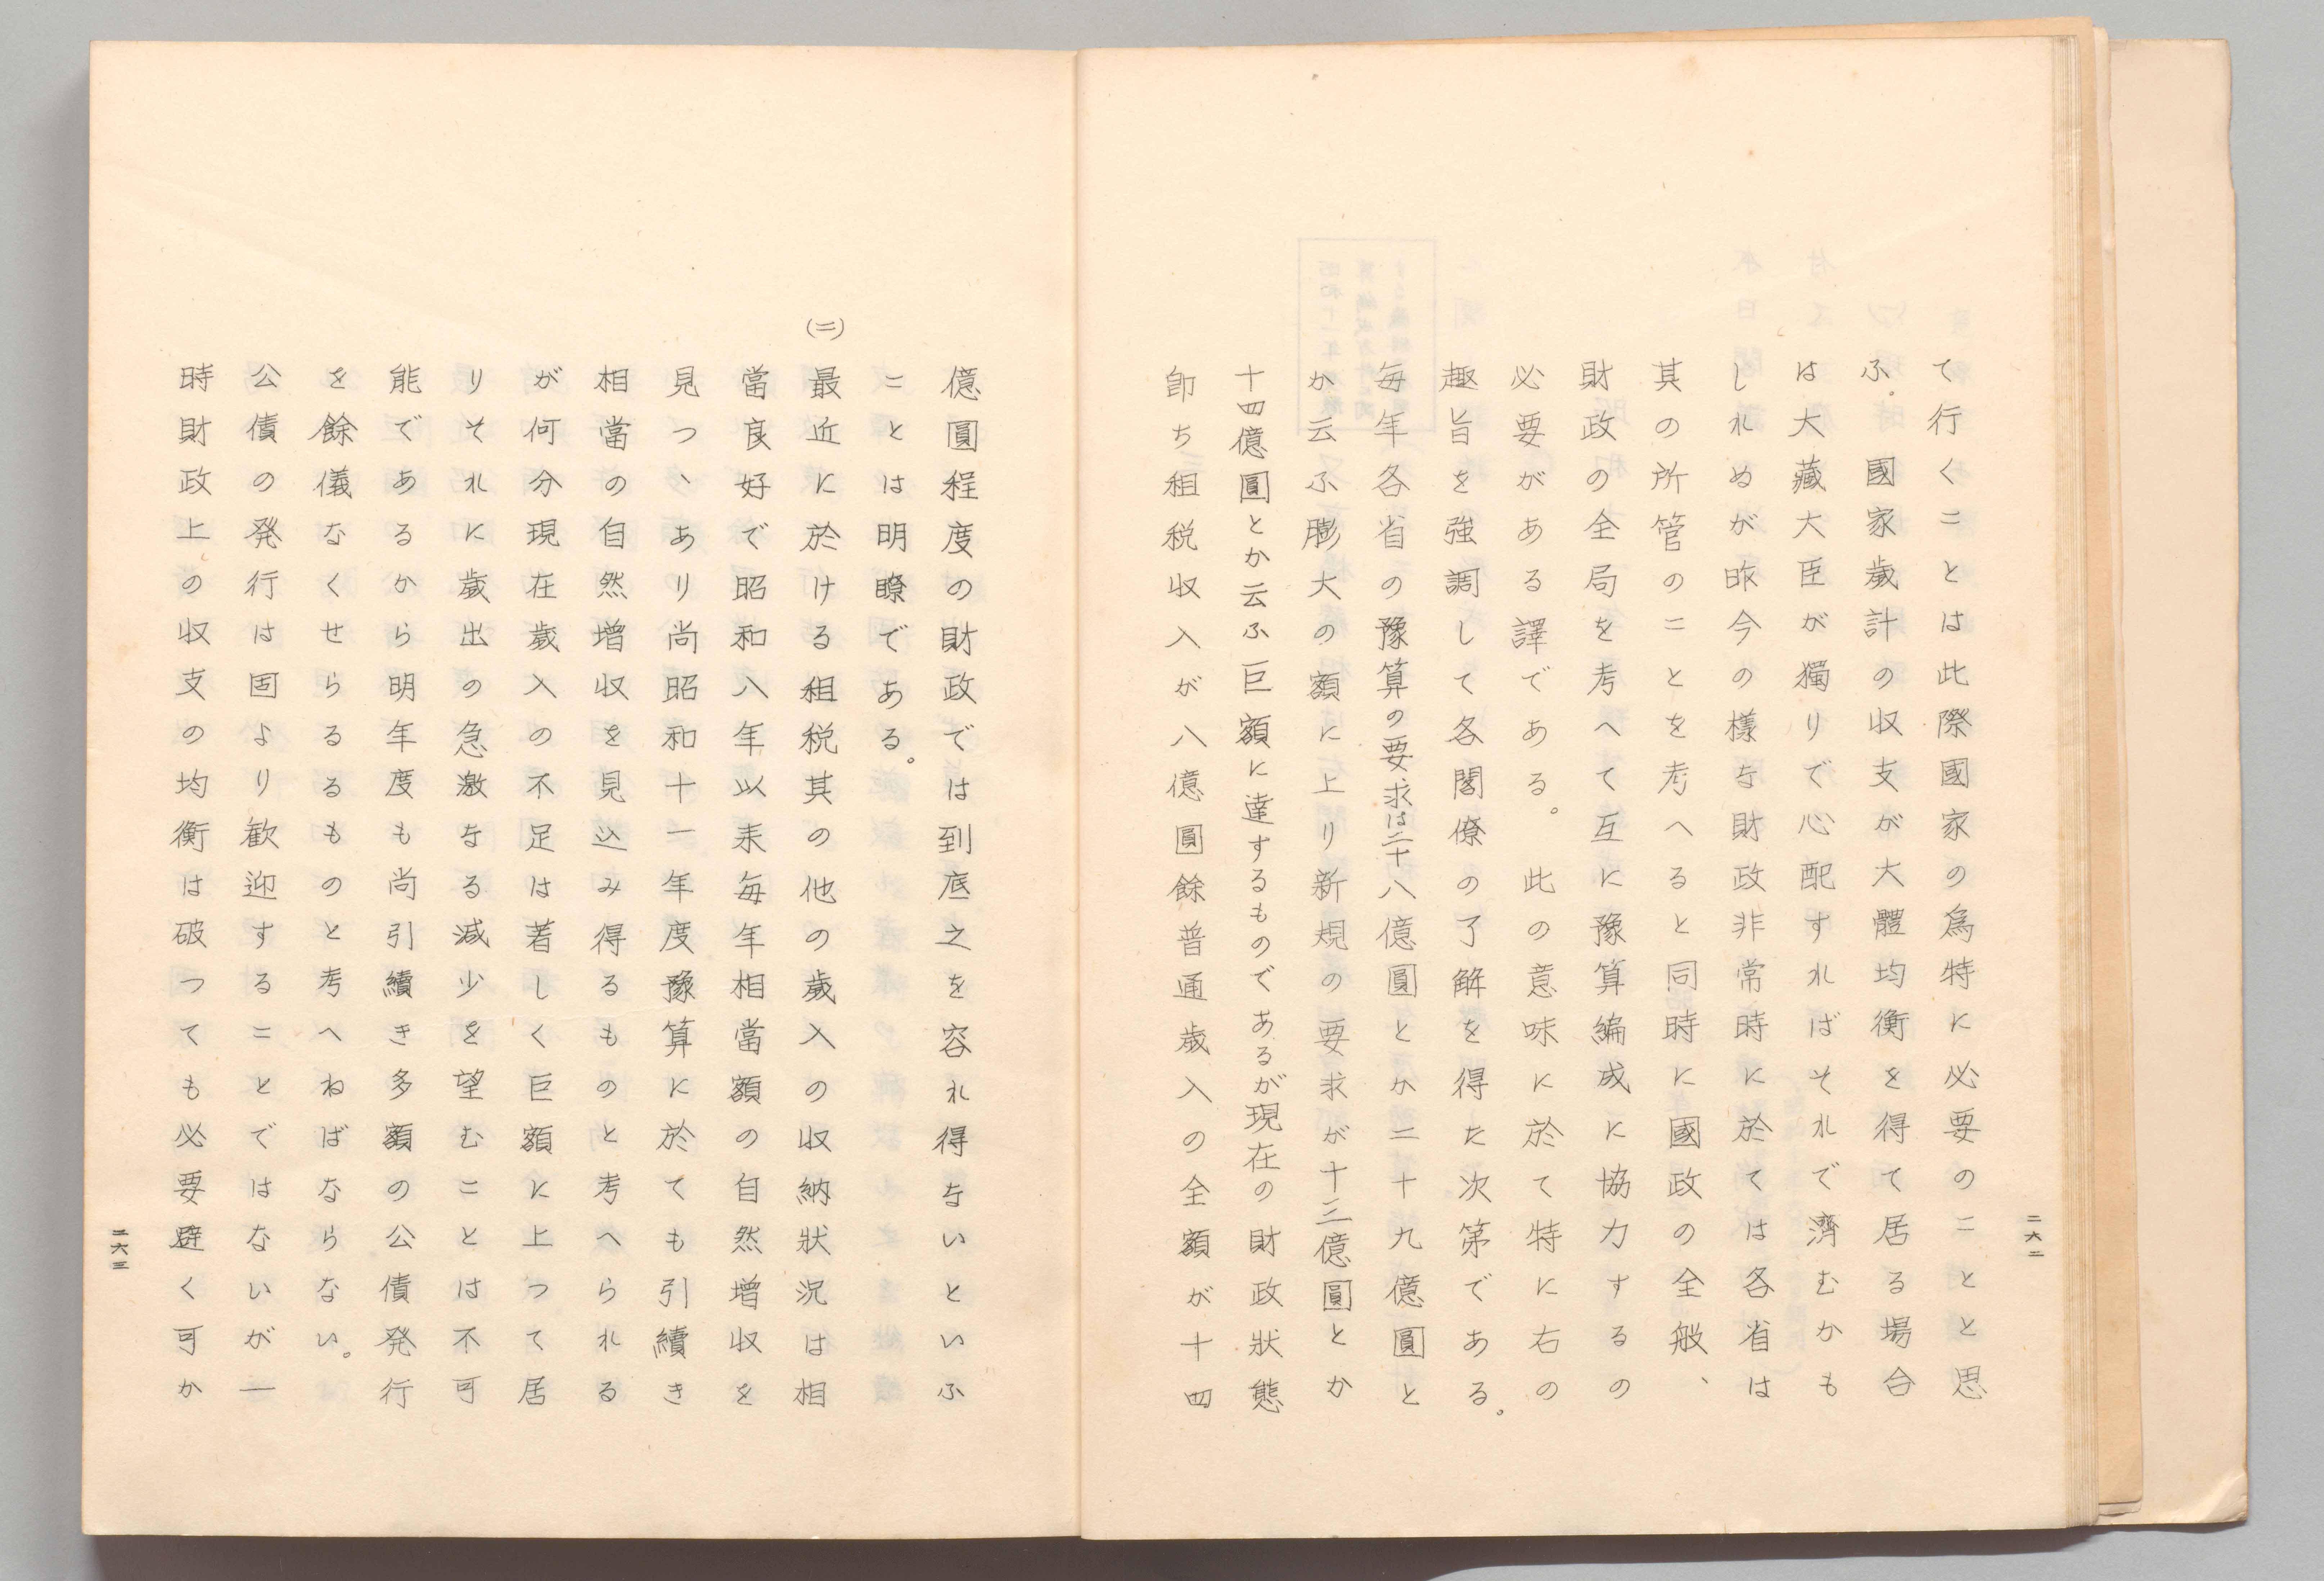 て行くことは此際國家の爲特に必要のことと思
ふ。國家歲計の収支が大體均衡を得て居る場合
は大藏大臣が獨りで心配すればそれで濟むかも
しれぬが昨今の樣な財政非常時に於ては各省は
其の所管のことを考へると同時に國政の全般、
財政の全局を考へて互に豫算編成に協力するの
必要がある譯である。此の意味に於て特に右の
趣旨を強調して各閣僚の了解を得た次第である。
毎年各省の豫算の要求は二十八億圓とか二十九億圓と
か云ふ膨大の額に上り新規の要求が十三億圓とか
十四億圓とか云ふ巨額に達するものであるが現在の財政狀態
卽ち租税収入が八億圓餘普通歲入の全額が十四
二六二
億圓程度の財政では到底之を容れ得ないといふ
ことは明瞭である。
(二)
最近に於ける租税其の他の歲入の収納狀況は相
當良好で昭和八年以来毎年相當額の自然增収を
見つヽあり尚昭和十一年度豫算に於ても引續き
相當の自然增収を見込み得るものと考へられる
が何分現在歲入の不足は著しく巨額に上つて居
りそれに歲出の急激なる減少を望むことは不可
能であるから明年度も尚引續き多額の公債発行
を餘儀なくせらるるものと考へねばならない。
公債の発行は固より歓迎することではないが一
時財政上の収支の均衡は破つても必要避く可か
二六三